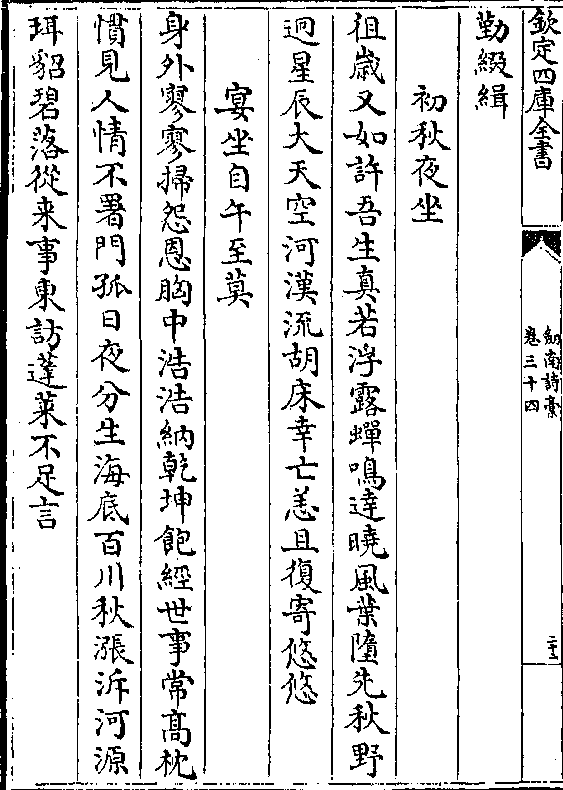 欽定四庫全書
劒南詩稾
卷三十四
二十三
勤綴緝
初秋夜坐
徂歳又如許吾生真若浮露蟬鳴達曉風葉墮先秋野
迥星辰大天空河漢流胡床幸亡恙且復寄悠悠
宴坐自午至莫
身外寥寥掃怨恩胸中浩浩納乾坤飽經世事常髙枕
慣見人情不署門孤日夜分生海底百川秋漲泝河源
珥貂碧落從来事東訪蓬莱不足言